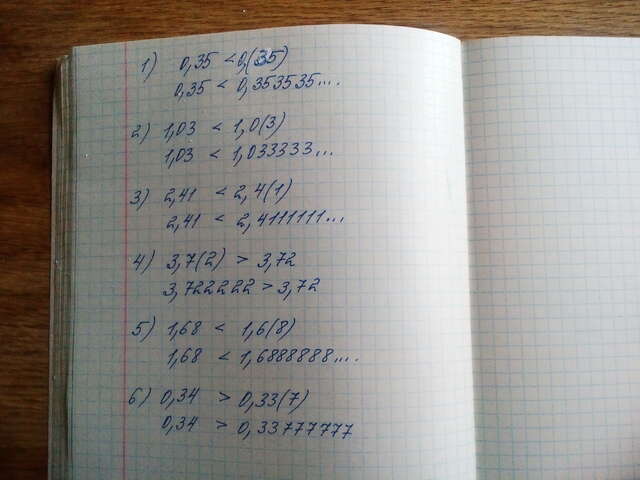 1) 0,35 < 0,(35)
0,35 < 0,353535....
2) 1,03 < 1,0(3)
1,03 < 1,033333...
3) 2,41 < 2,4(1)
2,41 < 2,4111111...
4) 3,7(2) > 3,72
3,722222 > 3,72
5) 1,68 < 1,6(8)
1,68 < 1,6888888....
6) 0,34 > 0,33(7)
0,34 > 0,33777777